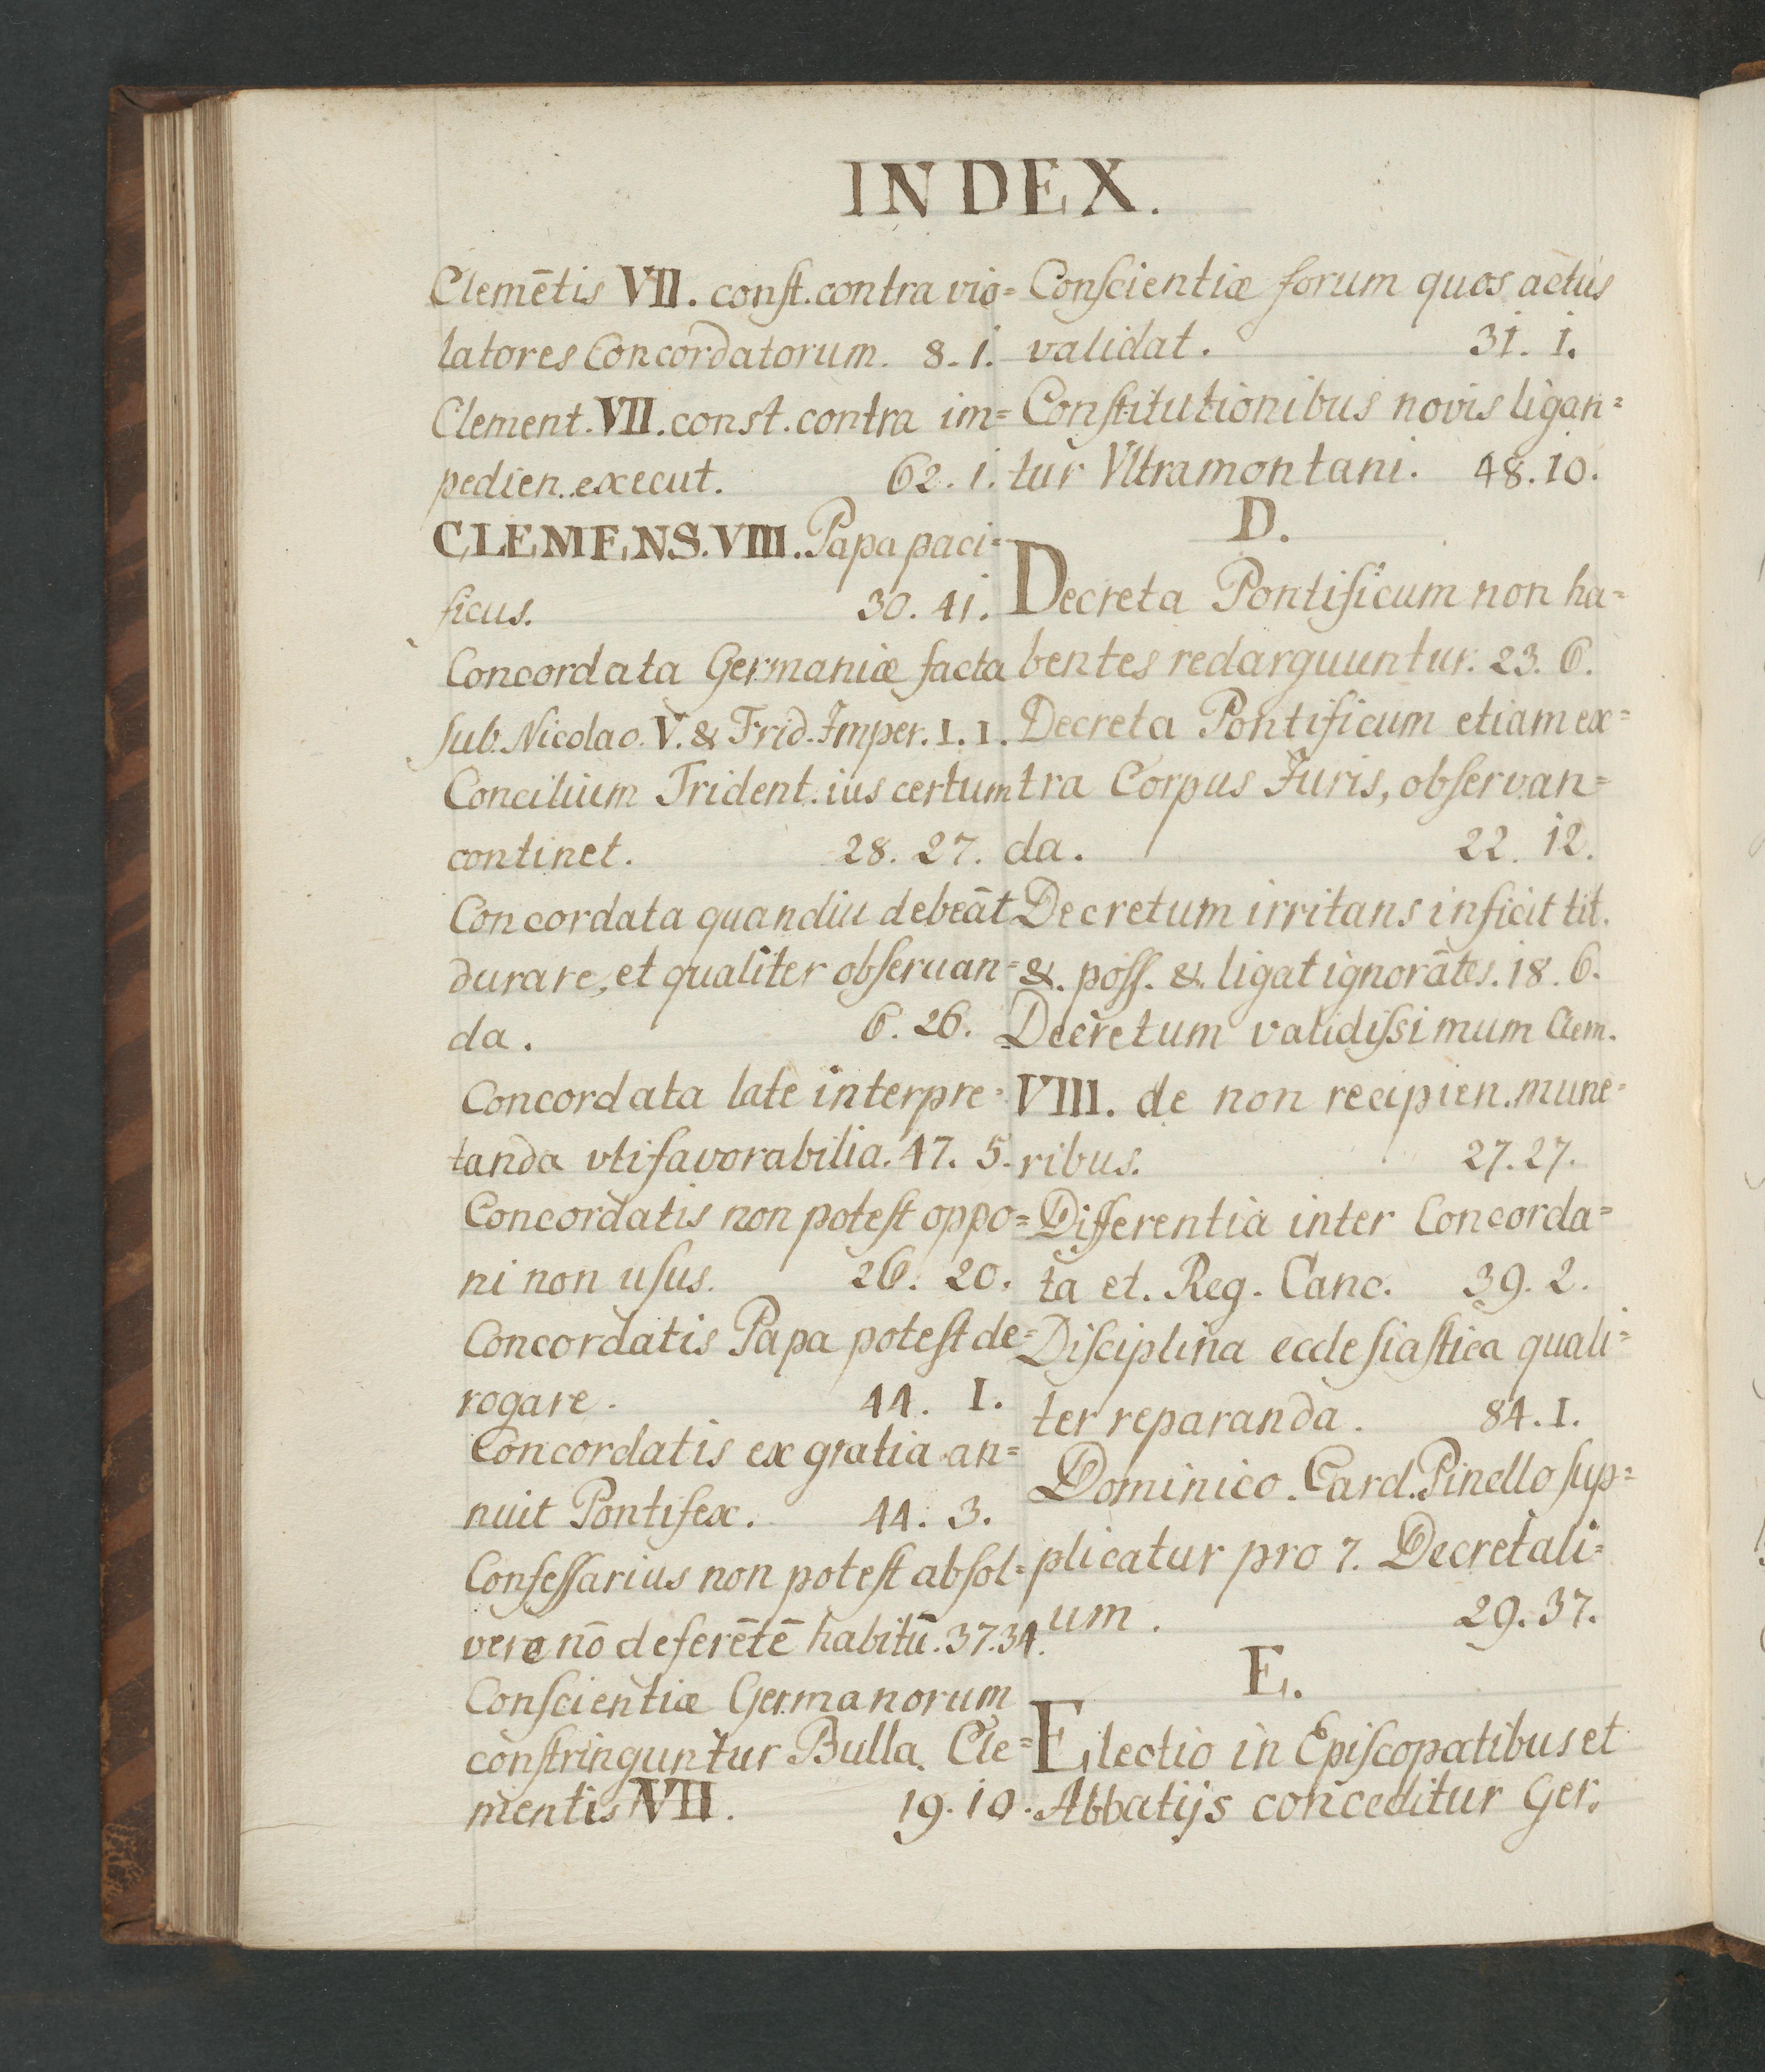 INDEX.
Clemētis VII. conſt. contra vio=
latores Concordatorum. 8. 1.
Clement. VII. const. contra im=
pedien. execut. 62. 1.
CLEMENS. VIII. Papa paci=
ficus. 30. 41.
Concordata Germaniæ facta
ſub. Nicolao. V. & Frid. Imper. I. I.
Concilium Trident. ius certum
continet. 28. 27.
Concordata quandiu debeāt
durare, et qualiter obſeruan=
da. 6. 26.
Concordata late interpre=
tanda vti favorabilia. 47. 5.
Concordatis non poteſt oppo=
ni non uſus. 26. 20.
Concordatis Papa poteſt de=
rogare. 44. I.
Concordatis ex gratia an=
nuit Pontifex. 44. 3.
Confeſſarius non poteſt abſol=
vere nō deferētē habitū. 37. 34.
Conſcientiæ Germanorum
conſtringuntur Bulla Cle=
mentis VII. 19. 10.
Conſcientiæ forum quos actus
validat. 31. 1.
Conſtitutionibus novis ligan=
tur Vltramontani. 48. 10.
D.
Decreta Pontificum non ha=
bentes redarguuntur. 23. 6.
Decreta Pontificum etiam ex=
tra Corpus Juris, obſervan=
da. 22. 12.
Decretum irritans inficit tit.
&. poſſ. &. ligat ignorātes. 18. 6.
Decretum validiſsimum Clem.
VIII. de non recipien. mune=
ribus. 27. 27.
Differentia inter Concorda=
ta et. Reg. Canc. 39. 2.
Diſciplina eccleſiaſtica quali=
ter reparanda. 84. I.
Dominico. Card. Pinello ſup=
plicatur pro 7. Decretali=
um. 29. 37.
E.
Electio in Epiſcopatibus et
Abbatijs conceditur Ger.